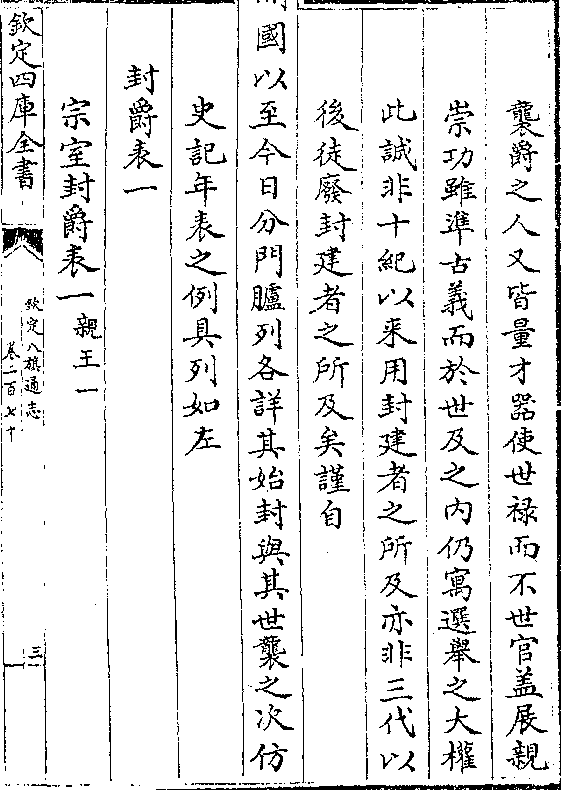 襲爵之人又皆量才器使世禄而不世官盖展親
崇功雖準古義而於世及之内仍寓選舉之大權
此誠非十紀以来用封建者之所及亦非三代以
後徒廢封建者之所及矣謹自
國以至今日分門臚列各詳其始封與其世襲之次仿
史記年表之例具列如左
封爵表一
宗室封爵表一親王一
欽定四庫全書
欽定八旗通志
卷一百七十
三